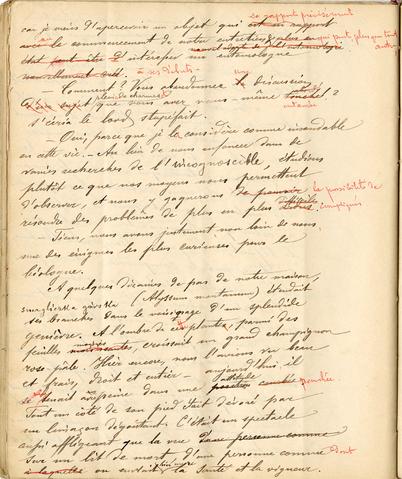 se rapporte précisément
car je viens d'apercevoir un objet qui est en rapport
avec le commencement de notre entretien, et qui peut plus que tout
autre
intéresser un entomologue
à ses débuts.
— Comment? Vous abandonnez une discussion
sujet plein de charmes que vous avez vous-même
entamée
s'écria le lord stupéfait.
— Oui, parce que je la considère comme insondable
en cette vie. — Au lieu de nous enfoncer dans de
vaines recherches de l'incognoscible, étudions
plutôt ce que nos moyens nous permettent
d'observer, et nous y gagnerons la possibilité de
résoudre des problèmes de plus en plus compliqués
— Tiens, nous avons justement non loin de nous
une des énigmes les plus curieuses pour le
biologue.
A quelques dizaines de pas de notre maison,
(Alyssum montanum) étendait
ses branches dans le voisinage d'un splendide
genièvre. A l'ombre de ces plantes, parmi des
feuilles croissait un grand champignon
rose pâle. Hier encore, nous l'avions vu beau
et frais, droit et entier — aujourd'hui, il
se tenait à peine dans une attitude penchée
Tout un côté de son pied était dévoré par
un limaçon dégoûtant. C'était un spectacle
aussi affligeant que la vue d'une personne comme
sur un lit de mort d'une personne dont
on enviait la santé et la vigueur.